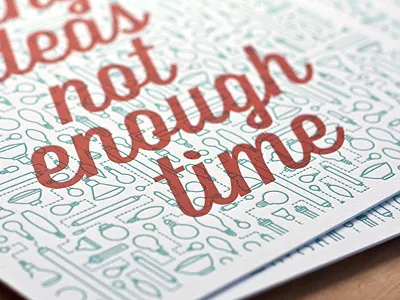 ideas
not
enough
time